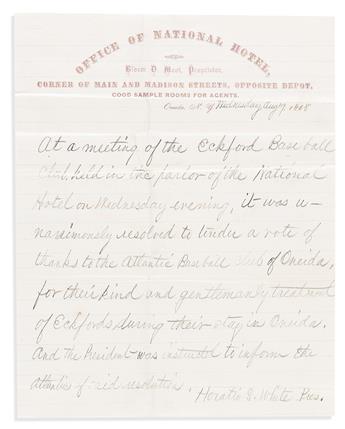 OFFICE OF NATIONAL HOTEL,
Proprietor,
CORNER OF MAIN AND MADISON STREETS, OPPOSITE DEPOT,
GOOD SAMPLE ROOMS FOR AGENTS.
Oneida, N. Y. Wednesday Aug 1868
At a meeting of the Eckford Base ball
Club, held in the parlor of the National
Hotel on Wednesday evening, it was u-
nanimously resolved to tender a vote of
thanks to the Atlantic Base ball Club of Oneida,
for their kind and gentlemanly treatment
of Eckfords during their stay in Oneida.
And the President was instructed to inform the
Atlantic of said resolution.
Horatio S. White Pres.